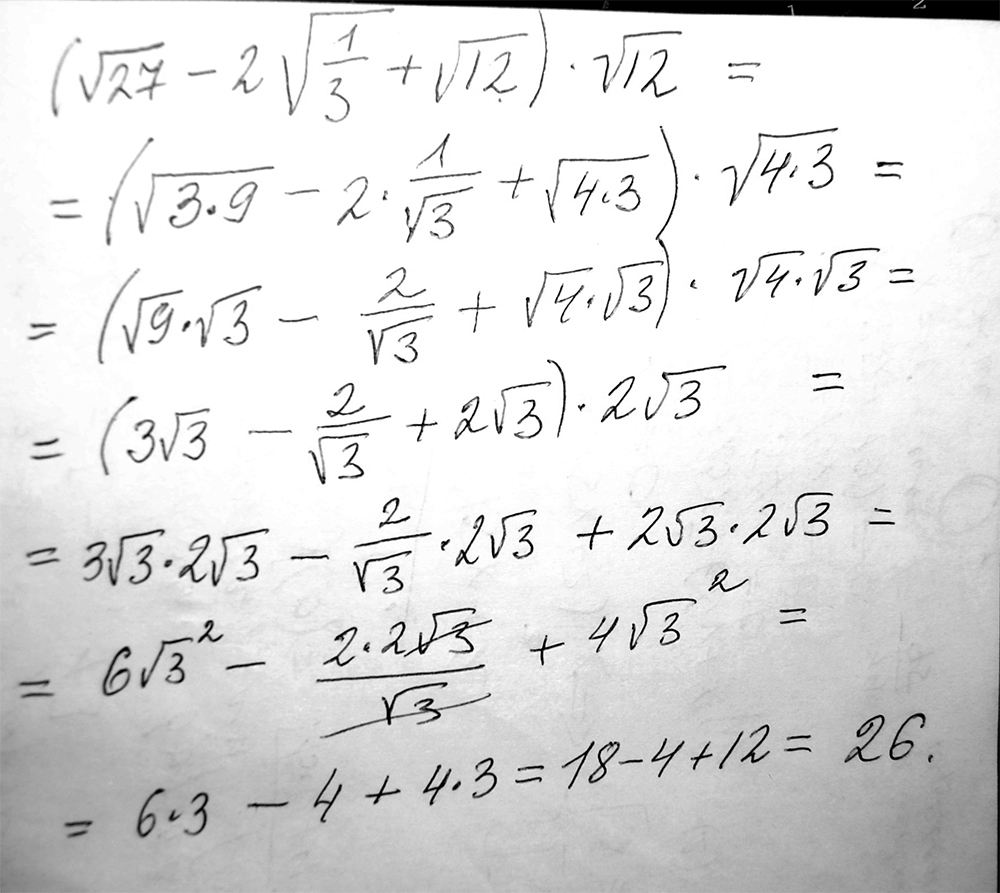 (√27 − 2√(1/3) + √12) · √12 =
= (√(3·9) − 2 · 1/√3 + √(4·3)) · √(4·3) =
= (√9·√3 − 2/√3 + √4·√3) · √4·√3 =
= (3√3 − 2/√3 + 2√3) · 2√3 =
= 3√3·2√3 − 2/√3 · 2√3 + 2√3·2√3 =
= 6√3² − 2·2√3/√3 + 4√3² =
= 6·3 − 4 + 4·3 = 18−4+12 = 26.